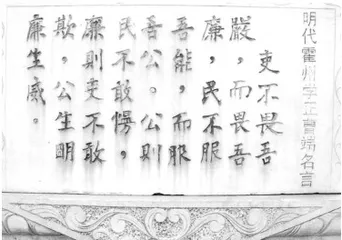 明代霍州学正曹端名言
吏不畏吾
严，而畏吾
廉，民不服
吾能，而服
吾公。公则
民不敢愕，
廉则吏不敢
欺，公生明
廉生威。